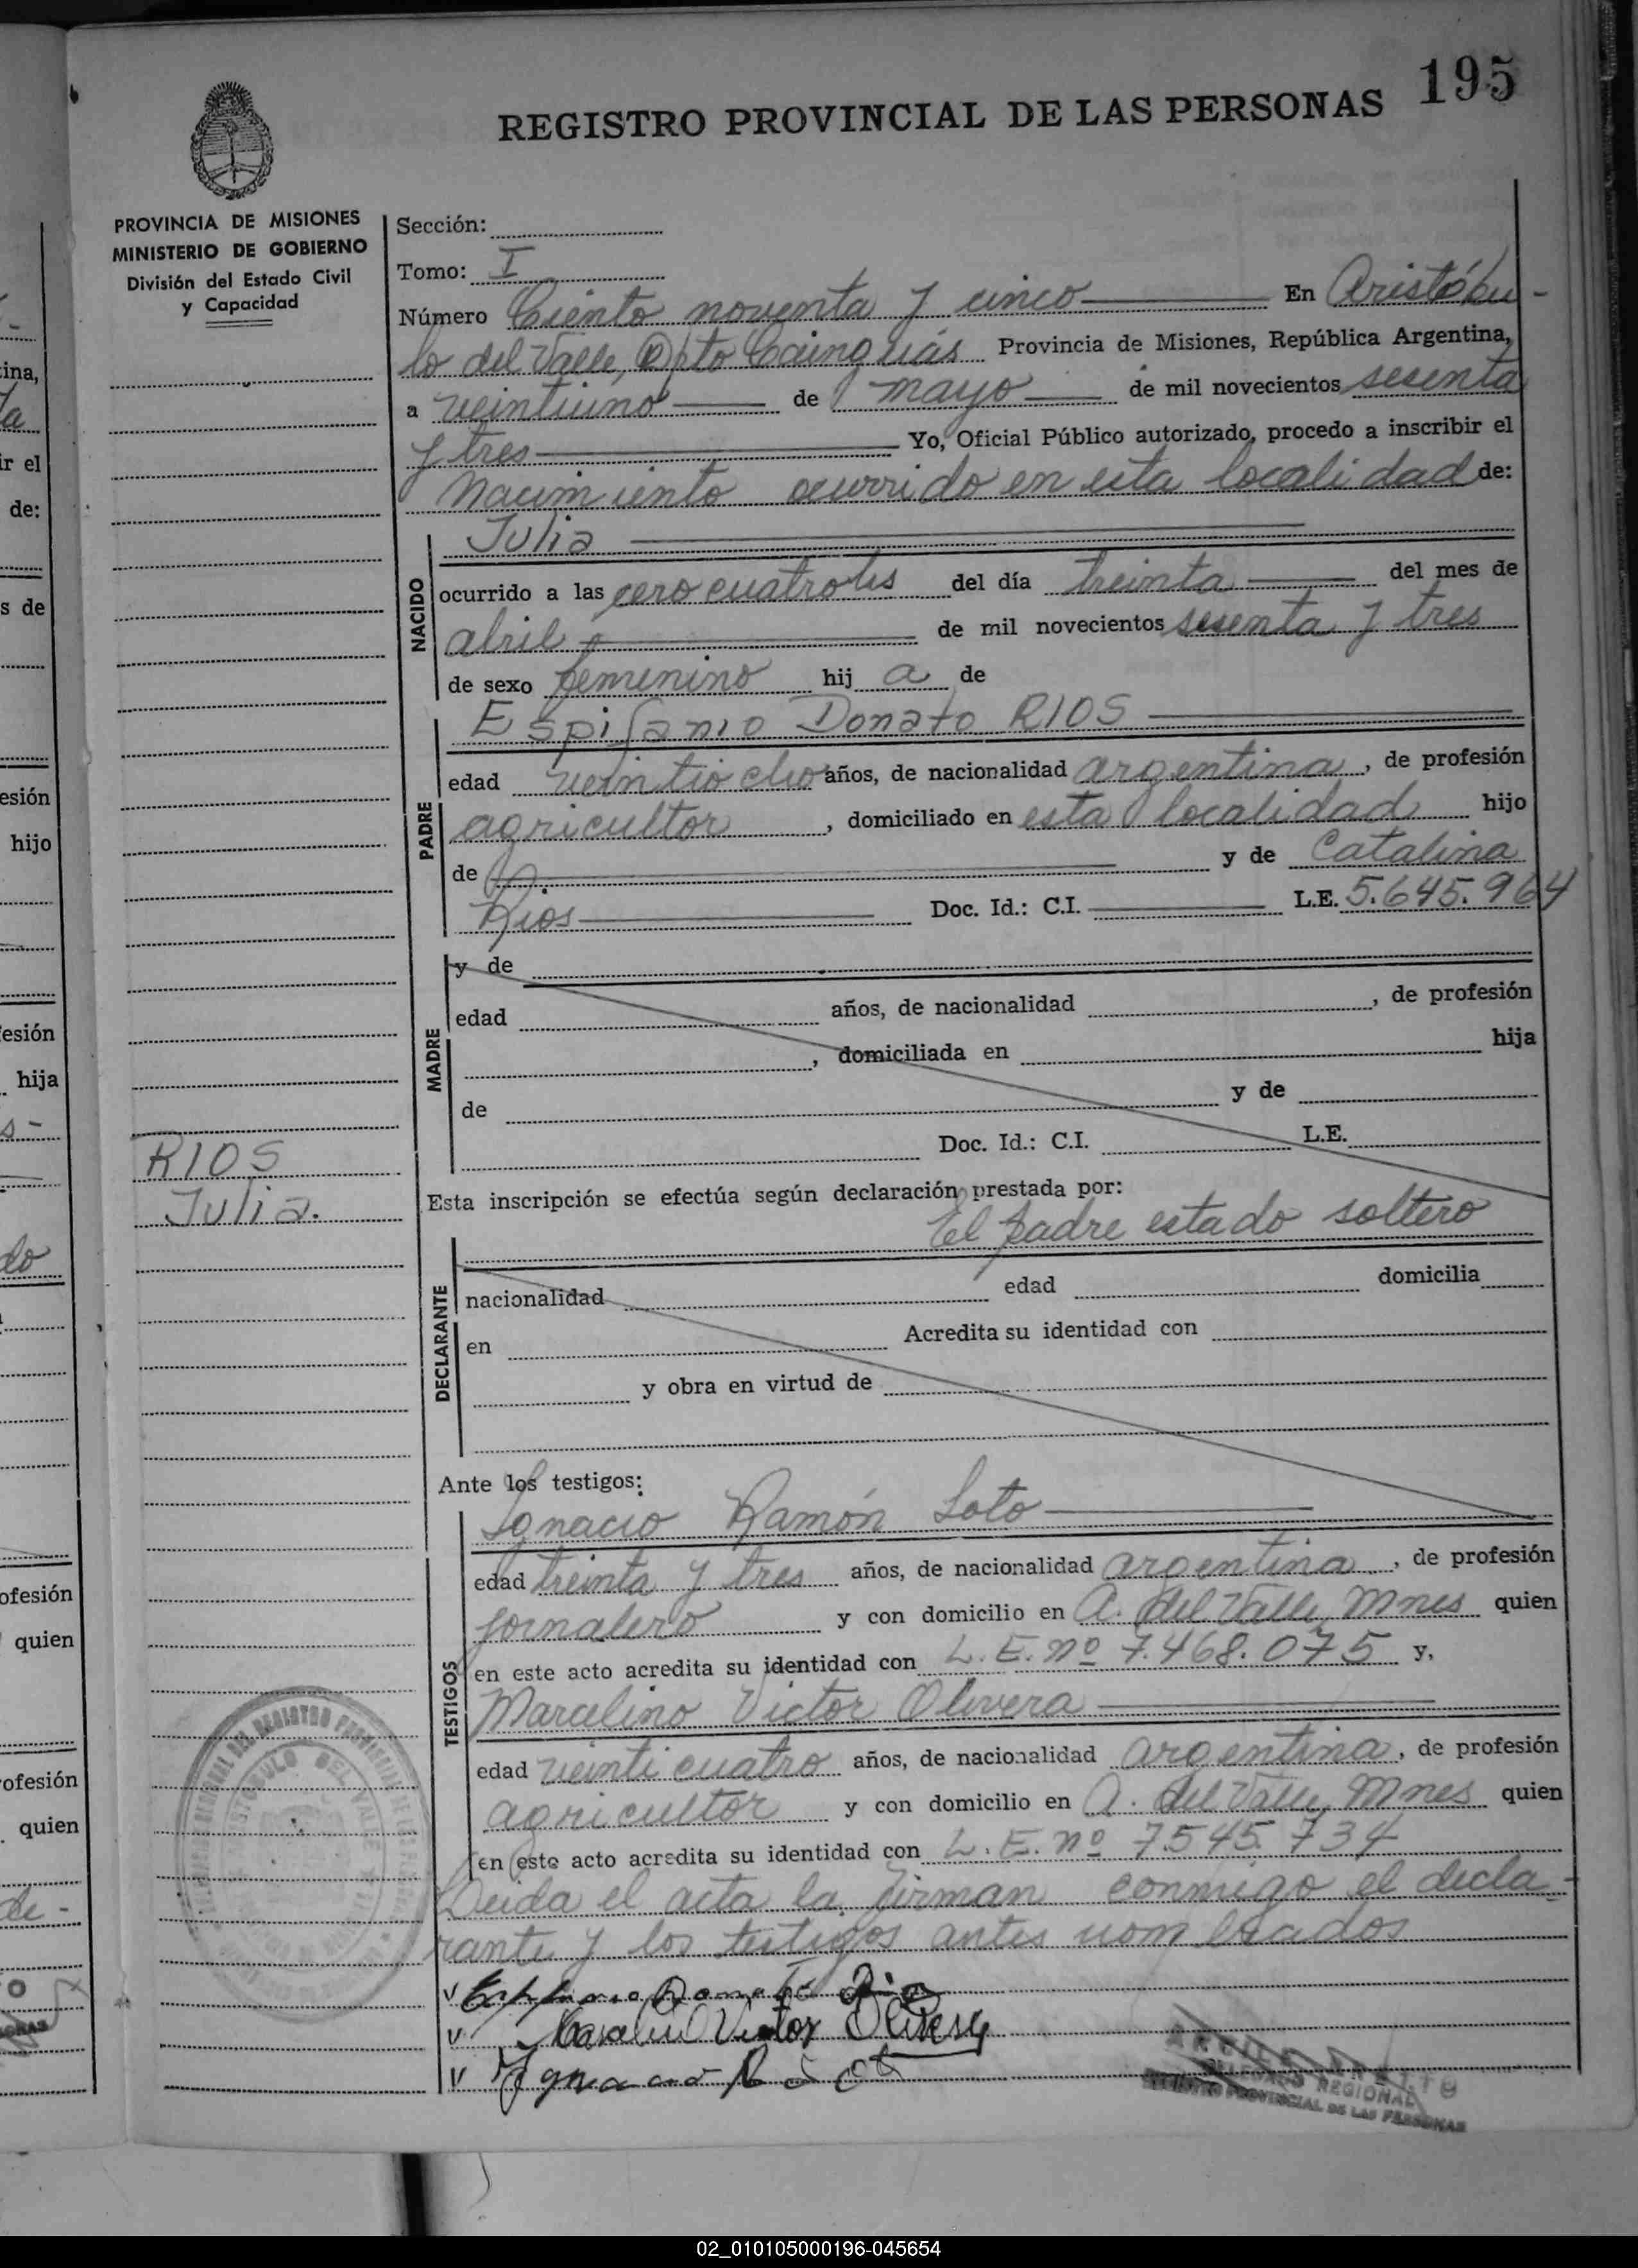 195
REGISTRO PROVINCIAL DE LAS PERSONAS
PROVINCIA DE MISIONES
MINISTERIO DE GOBIERNO
División del Estado Civil
y Capacidad
Sección:
Tomo: I
Número Ciento noventa y cinco En Aristóbu-
lo del Valle, Dpto Cainguás Provincia de Misiones, República Argentina,
a veintiuno de mayo de mil novecientos sesenta
y tres Yo, Oficial Público autorizado, procedo a inscribir el
Nacimiento ocurrido en esta localidad de:
NACIDO
Julia
ocurrido a las cero cuatro hs del día treinta del mes de
abril de mil novecientos sesenta y tres
de sexo femenino hij a de
PADRE
Espifanio Donato RIOS
edad veintiocho años, de nacionalidad argentina, de profesión
agricultor, domiciliado en esta localidad hijo
de y de Catalina
Rios Doc. Id.: C.I. L.E. 5.645.964
MADRE
y de
edad años, de nacionalidad , de profesión
, domiciliada en hija
de y de
Doc. Id.: C.I. L.E.
RIOS
Julia.
Esta inscripción se efectúa según declaración prestada por:
El padre estado soltero
DECLARANTE
nacionalidad edad domicilia
en Acredita su identidad con
y obra en virtud de
Ante los testigos:
TESTIGOS
Ignacio Ramón Soto
edad treinta y tres años, de nacionalidad argentina, de profesión
jornalero y con domicilio en A. del Valle, Mnes quien
en este acto acredita su identidad con L. E. nº 7.468.075 y,
Marcelino Victor Olivera
edad veinticuatro años, de nacionalidad argentina, de profesión
agricultor y con domicilio en A. del Valle, Mnes quien
en este acto acredita su identidad con L. E. nº 7.545.734
Leida el acta la firman conmigo el decla-
rante y los testigos antes nombrados
Donato Rios
Victor Olivera
Ignacio R
DELEGADO REGIONAL
REGISTRO PROVINCIAL DE LAS PERSONAS
02_010105000196-045654